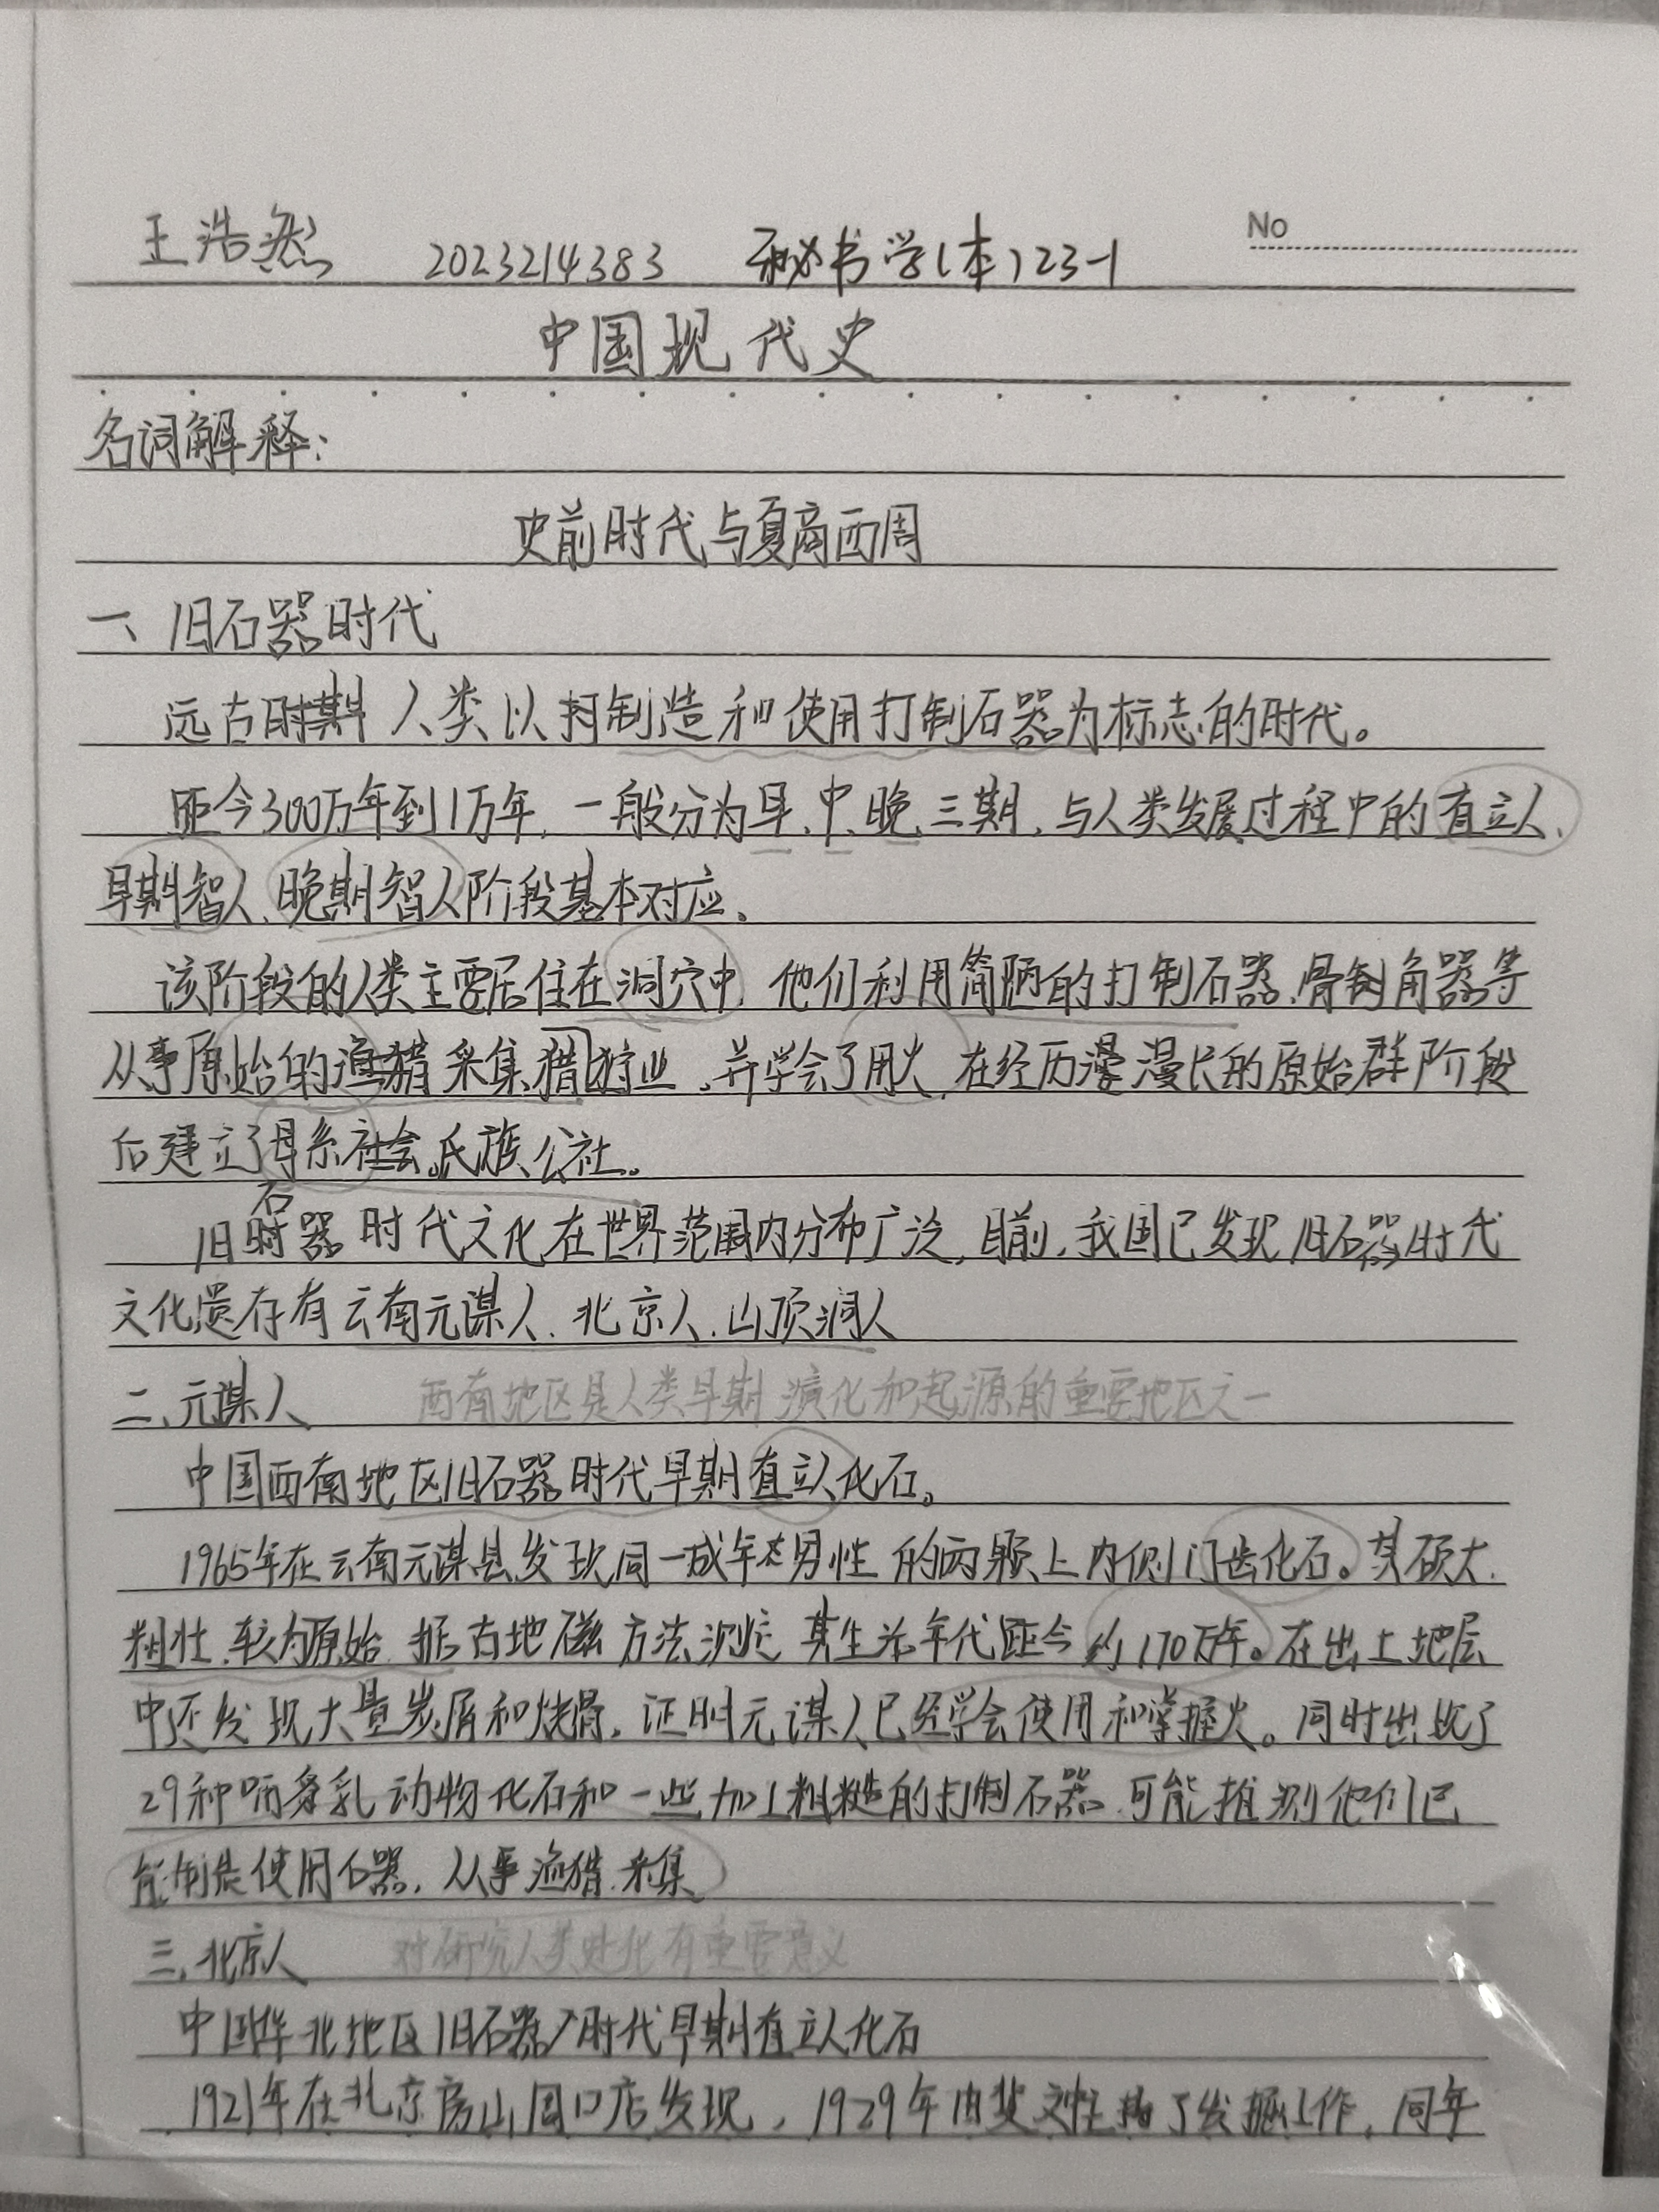 No
王浩然 2023214383 秘书学(本)23-1
中国现代史
名词解释:
史前时代与夏商西周
一、旧石器时代
远古时期 人类以制造和使用打制石器为标志的时代。
距今300万年到1万年,一般分为早、中、晚、三期,与人类发展过程中的直立人、
早期智人、晚期智人阶段基本对应。
该阶段的人类主要居住在洞穴中,他们利用简陋的打制石器、骨制角器等
从事原始的 采集猎狩业,并学会了用火,在经历漫长的原始群阶段
后建立了母系氏族公社。
旧石器时代文化在世界范围内分布广泛,目前,我国已发现旧石器时代
文化遗存有云南元谋人、北京人、山顶洞人
二、元谋人 西南地区是人类早期演化和起源的重要地区之一
中国西南地区旧石器时代早期直立人化石。
1965年在云南元谋县发现同一成年男性的两颗上内侧门齿化石。其硕大、
粗壮、较为原始,据古地磁方法测定其生活年代距今约170万年。在出土地层
中还发现大量炭屑和烧骨,证明元谋人已经学会使用和掌握火。同时出现了
29种哺乳动物化石和一些加工粗糙的打制石器,可能推测他们已
能制造使用石器,从事渔猎、采集
三、北京人 对研究人类进化有重要意义
中国华北地区旧石器时代早期直立人化石
1921年在北京房山周口店发现,1929年由裴文 了发掘工作,同年